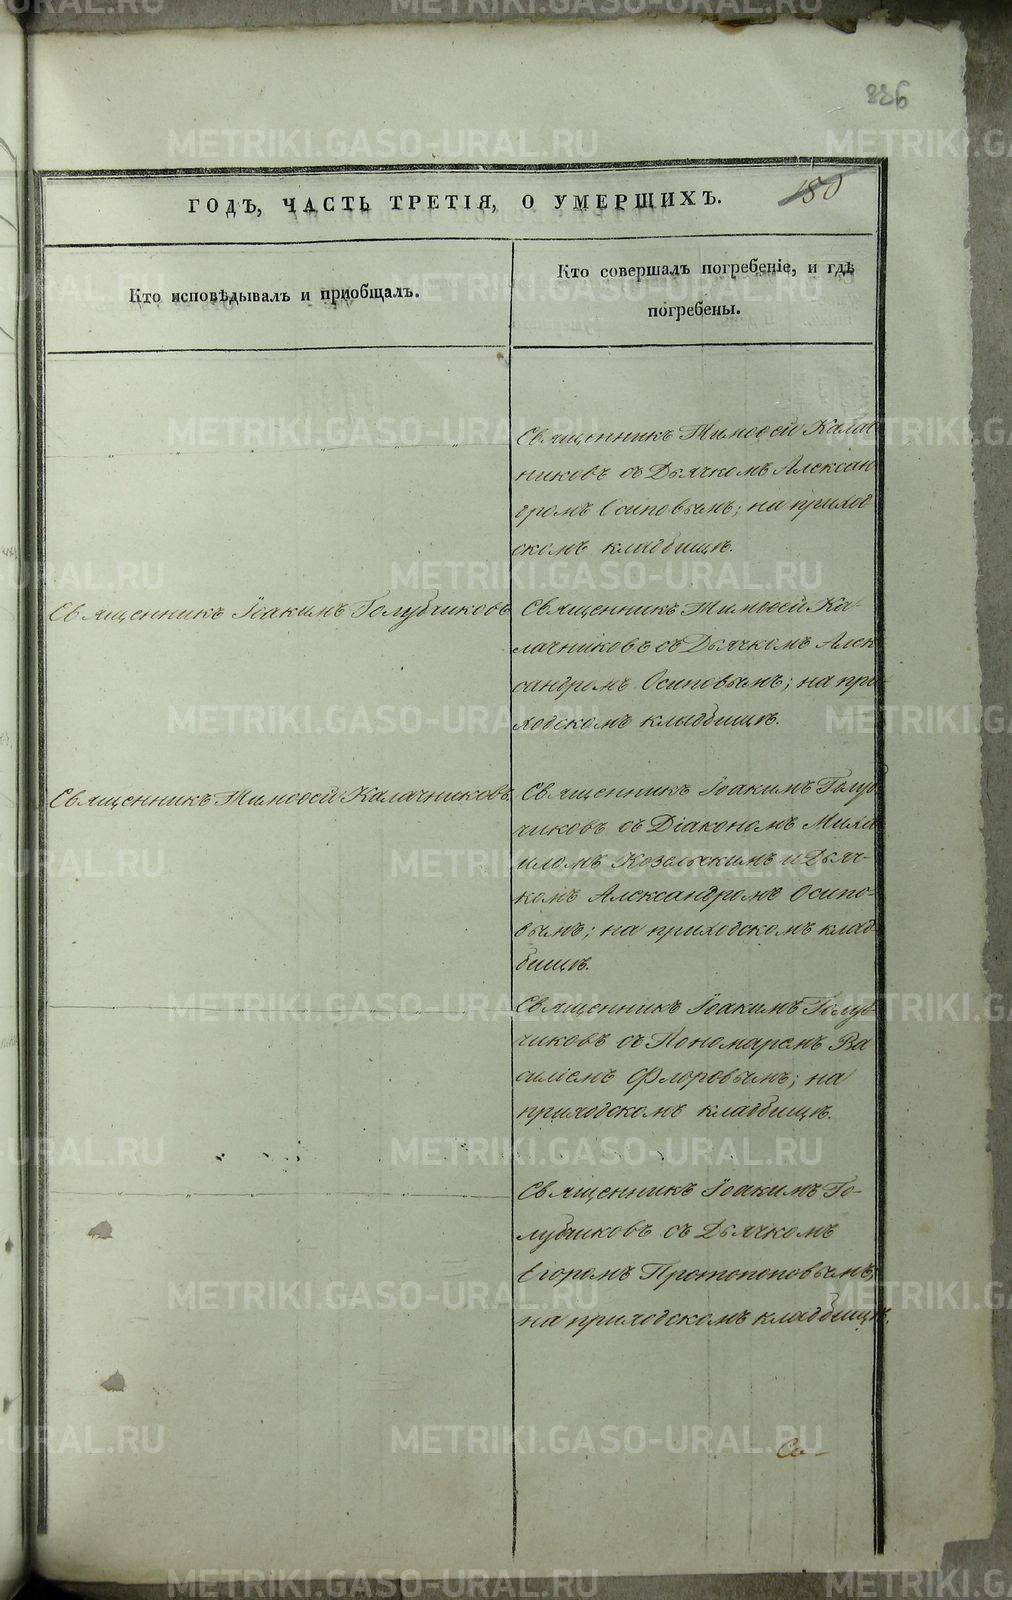 886
180
ГОДЪ, ЧАСТЬ ТРЕТІЯ, О УМЕРШИХЪ.
Кто исповѣдывалъ и пріобщалъ.
Кто совершалъ погребеніе, и гдѣ
погребены.
Священникъ Тимоѳей Калач
никовъ съ Дьячкомъ Алексан
дромъ Осиповымъ; на приход
скомъ кладбищѣ.
Священникъ Іоакимъ Голубчиковъ
Священникъ Тимоѳей Ка-
лачниковъ съ Дьячкомъ Алек
сандромъ Осиповымъ; на при-
ходскомъ кладбищѣ.
Священникъ Тимоѳей Калачниковъ
Священникъ Іоакимъ Голуб
чиковъ съ Діакономъ Миха
иломъ Козельскимъ и Дьяч-
комъ Александромъ Осипо-
вымъ; на приходскомъ клад
бищѣ.
Священникъ Іоакимъ Голуб-
чиковъ съ Пономаремъ Ва
силіемъ Флоровымъ; на
приходскомъ кладбищѣ.
Священникъ Іоакимъ Го-
лубчиковъ съ Дьячкомъ
Егоромъ Протопоповымъ;
на приходскомъ кладбищѣ.
Св-
METRIKI.GASO-URAL.RU